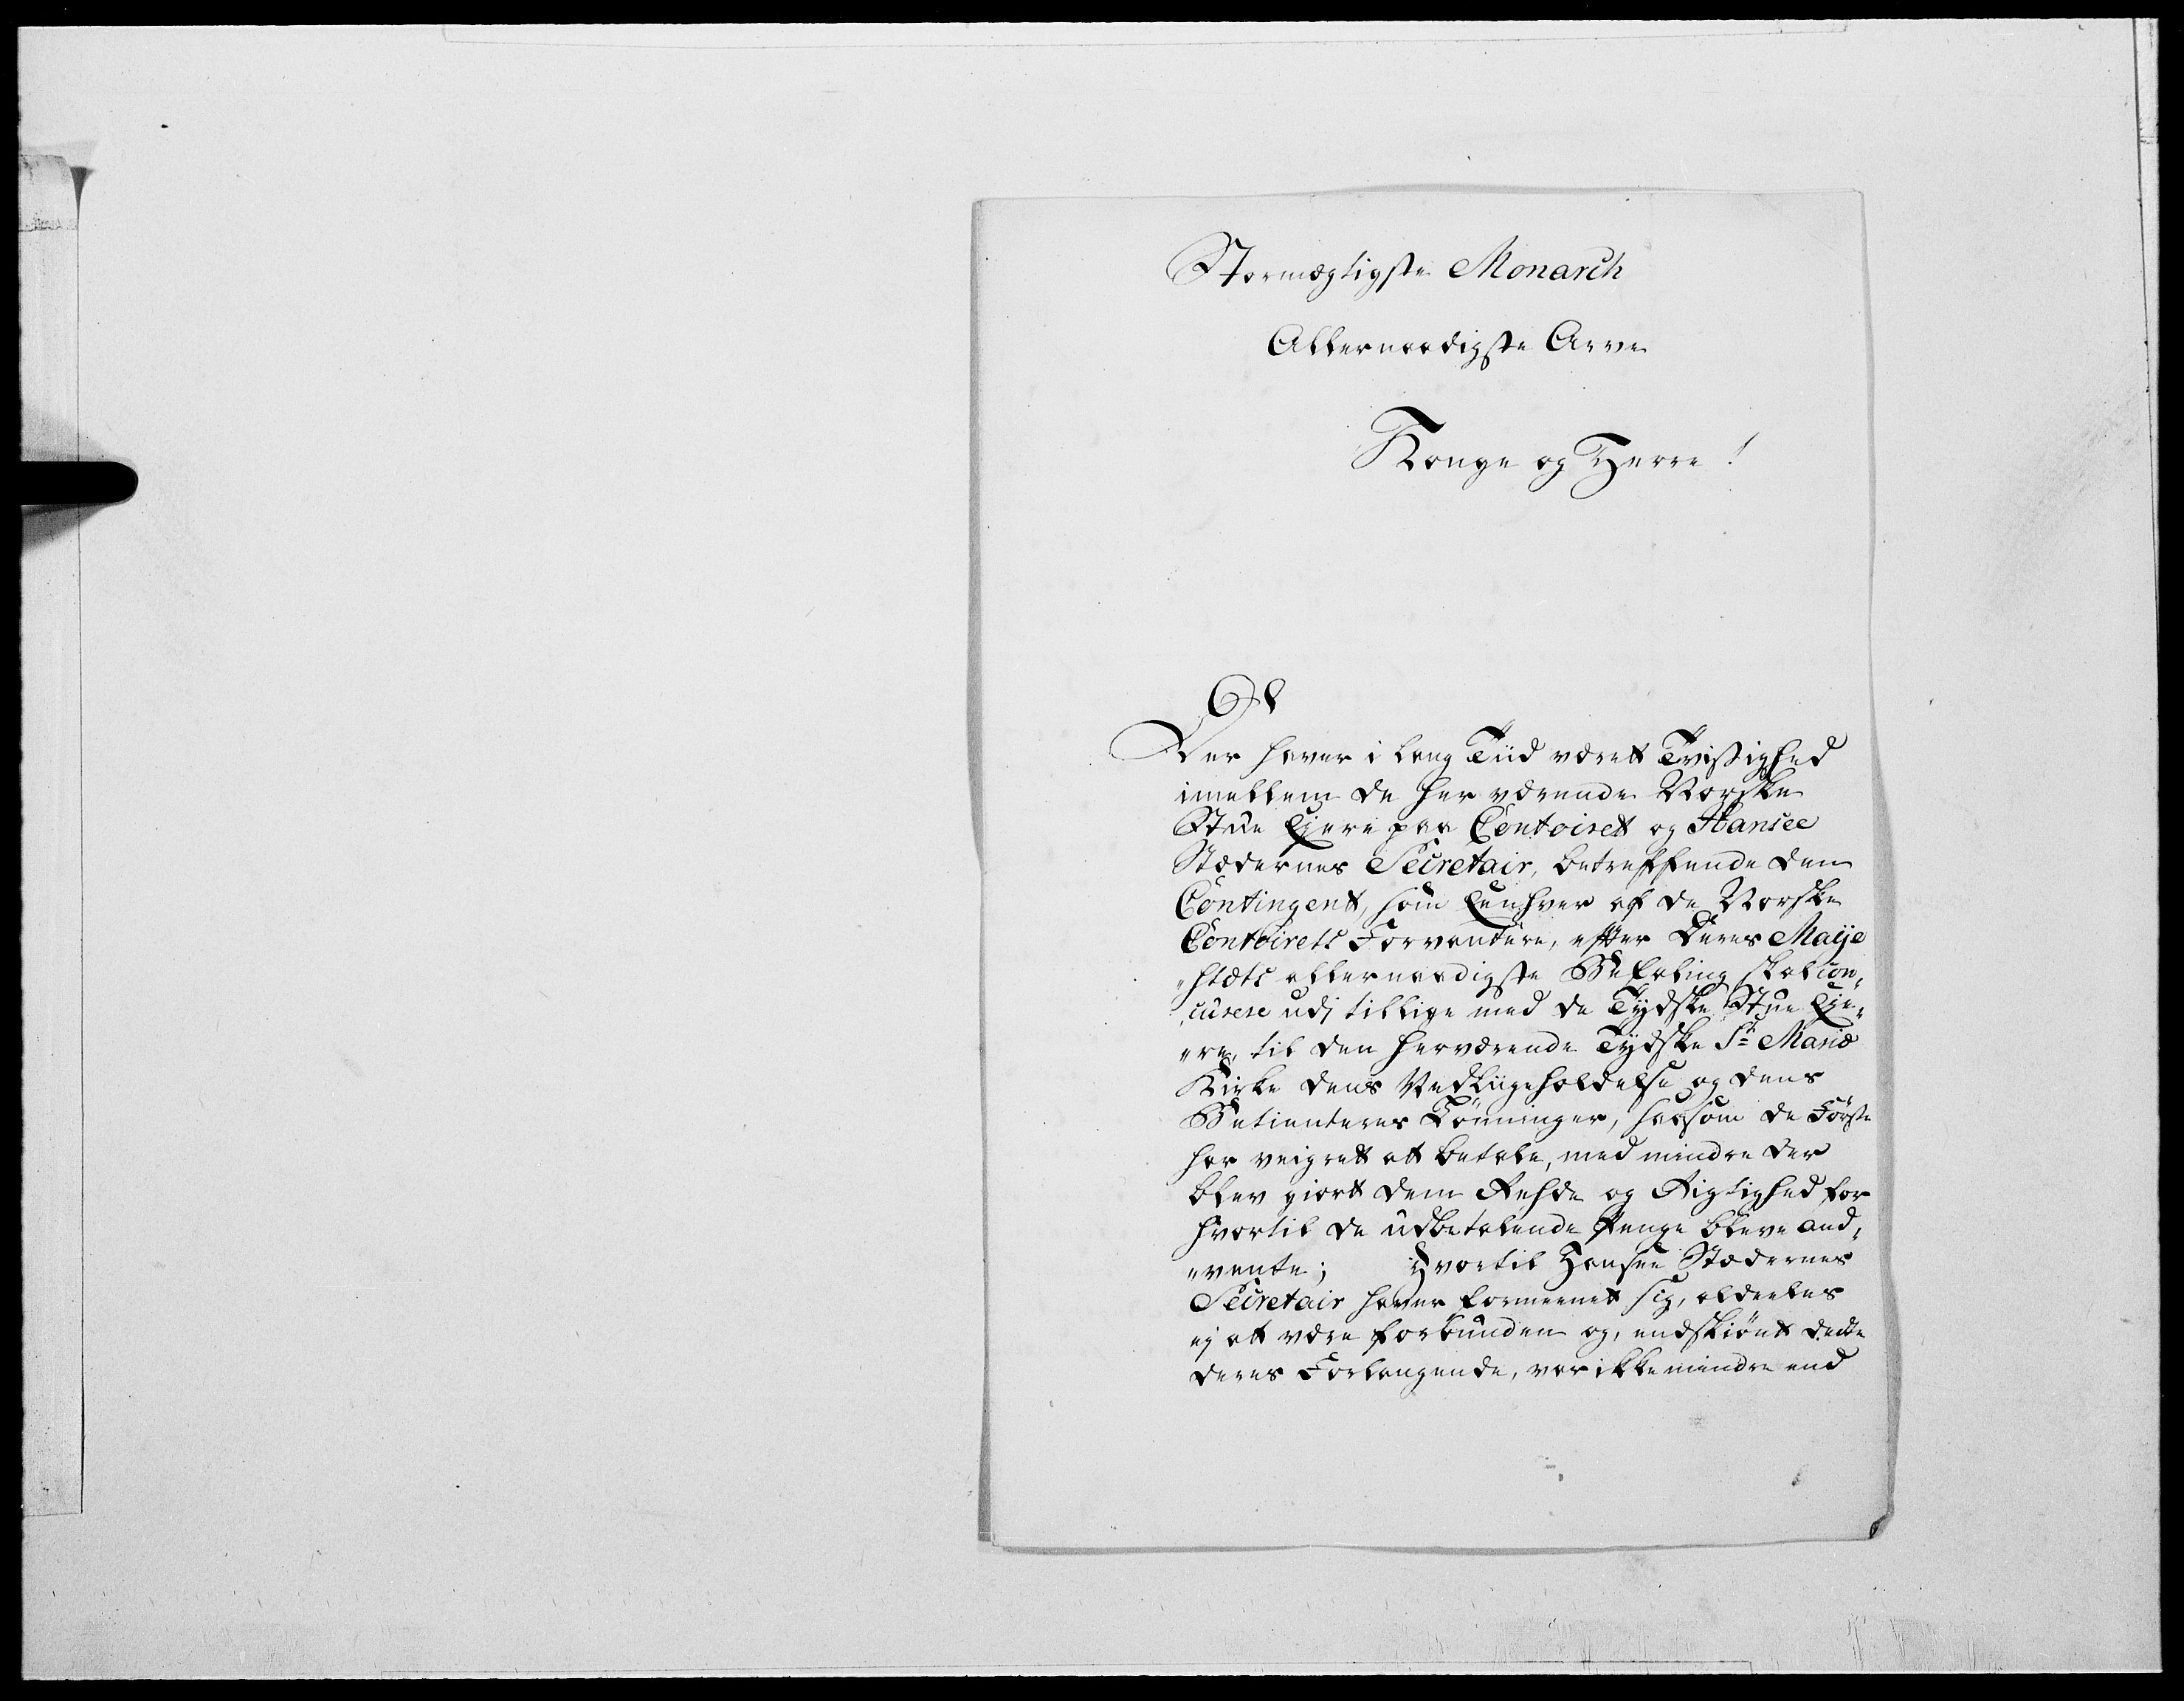 Stormægtigste Monarch
Allernaadigste Arve
Konge og Herre!
Der haver i lang Tiid været Tvistighed
imellem de her værende Norske
Stue Ejere paa Contoiret og Hansee
Stædernes Secretair, betreffende den
Contingent, som Eenhver af de Norske
Contoirets Forvandtere, efter Deres Maije
„stæts allernaadigste Befaling skal con„
„curere udj tillige med de Tydske Stue Eje„
„re, til den herværende Tydske St Mariæ
Kirke dens Vedligeholdelse og dens
Betienteres Lønninger, saasom de Første
har veigret at betale, med mindre der
blev giort dem Rehde og Rigtighed for
hvortil de udbetalende Penge bleve and„
„vente; Hvortil Hansee Stædernes
Secretair haver formeenet sig, aldeeles
ej at være forbunden og, endskiønt dette
deres Forlangende, var ikke mindre end